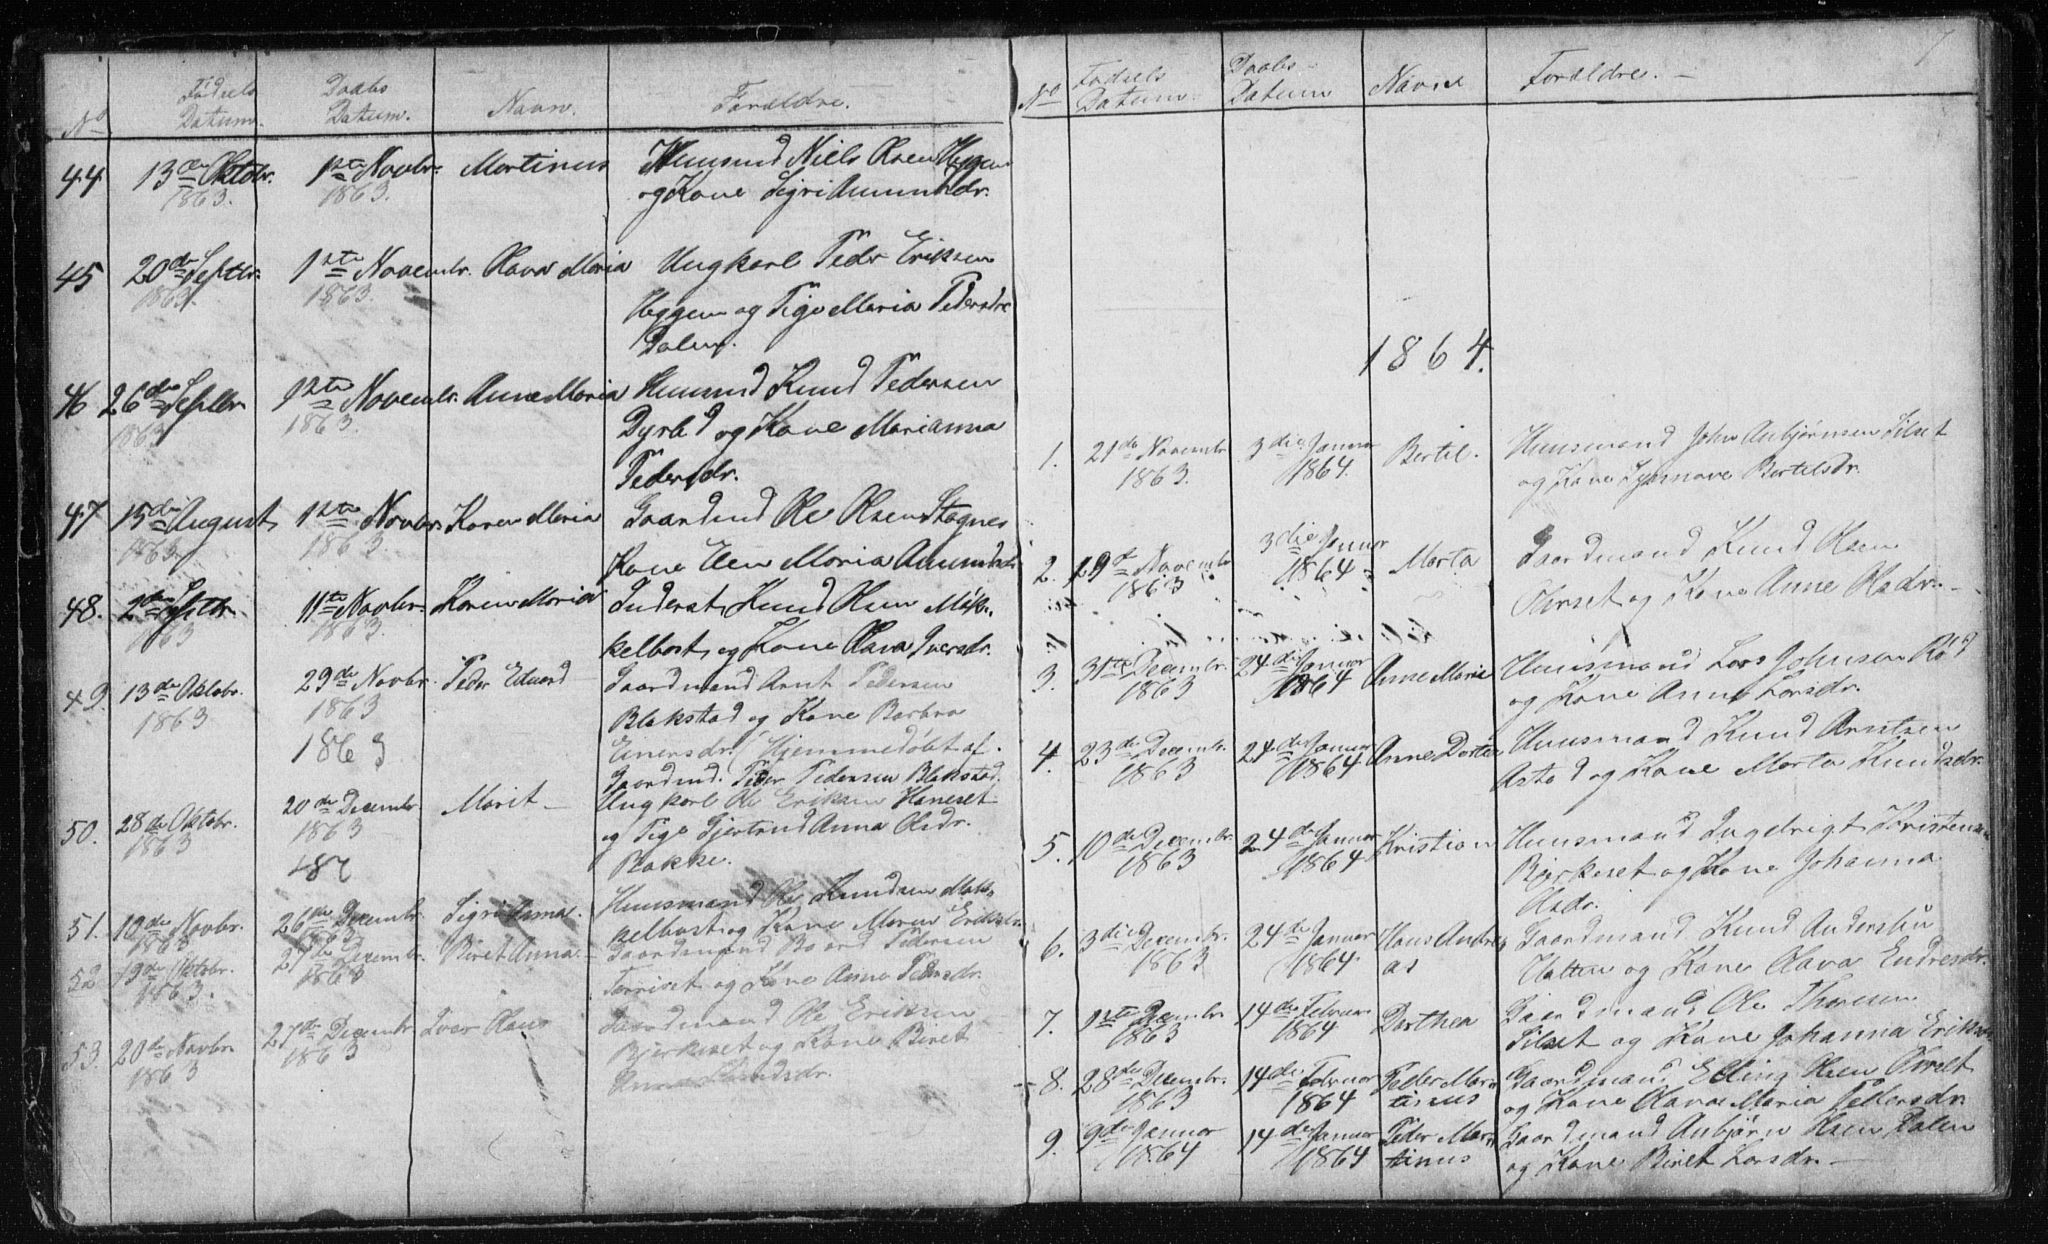 No Fødsels Datum. Daabs Datum. Navn. Forældre.
44 13de Oktobr. 1ste Novbr. Martinus Huusmd Niels Olsen Heggem
1863. 1863. og Kone Sigri Amundsdr.
45 20de Septbr. 1ste Novembr. Olava Maria Ungkarl Peder Eriksen
1863. 1863. Heggem og Pige Maria Pedersdr
Dalen.
46 26de Septbr. 1ste Novembr. Anne Maria Huusmd Knud Pedersen
1863 1863. og Kone Marianna
Pedersdr.
47 15de August 1ste Novbr. Karen Maria Gaardmd Ole Olsen Stognes
1863 1863. Kone Elen Maria Amundsdr
48. 2den Septbr. 11te Novbr. Karen Maria Inderst Knud Olsen Møk-
1863 1863. kelbost og Kone Olava Iversdr.
49. 13de Oktobr. 29de Novbr. Peder Eduard Gaardmand Arnt Pedersen
1863 1863 Blakstad og Kone Barbra
1863 Einersdr. (Hjemmedøbt af
Gaardmd. Peder Pedersen Blakstad.
50. 28de Oktobr. 20de Decembr. Marit — Ungkarl Ole Eriksen Haneset
1863 1863 og Pige Gjertrud Anna Olsdr.
Bakke.
51. 10de Novbr. 26de Decembr. Sigri Anna. Huusmand Ole Knudsen Møk-
1863 1863 kelbost og Kone Maren Eriksdr.
52 19de Oktobr. 27de Decembr. Beret Anna — Gaardmand Baard Pedersen
1863. 1863 Torriset og Kone Anne Pedersdr.
53. 20de Novbr. 27de Decembr Ivar Olaus Gaardmand Ole Eriksen
1863 1863 Bjerkeset og Kone Beret
Anna
7
No Fødsels Datum. Daabs Datum Navne Forældre. —
1864.
1. 21de Novembr 3die Januar Bertel. Huusmand John Anbjørnsen Silset
1863. 1864. og Kone Synnøve Bertelsdr.
2. 29de Novembr 3die Januar Marta Gaardmand Knud Olsen
1863 1864 og Kone Anne Olsdr. —
3. 31te Decembr. 24de Januar Anne Marie Huusmand Lars Johnsen Rød
1863 1864 og Kone Anne Larsdr.
4. 23de Decembr. 24de Januar Anne Dortea Huusmand Knud Arntsen
1863 1864 Astad og Kone Marta Knudsdr.
5. 10de Decembr. 24de Januar Kristian Huusmand Ingebrigt Kristensen
1863 1864 Bjerkeset og Kone Johanna
Olsdr.
6. 3die Decembr. 24de Januar Hans Andre- Gaardmand Knud Andersen
1863 1864. as Hatten og Kone Olava Endresdr.
7. 1ste Decembr 14de Februar Dorthea Gaardmand Ole Thoresen
1863 1864 Silset og Kone Johanna Eriksdr.
8. 28de Decembr. 14de Februar Peder Mar- Gaardmand Elling Olsen Orset
1863 1864 tinus og Kone Olava Maria Pedersdr.
9. 9de Januar 14de Januar Peder Mar- Gaardmand Anbjørn Olsen Dalen
1864 1864 tinus og Kone Beret Larsdr. —